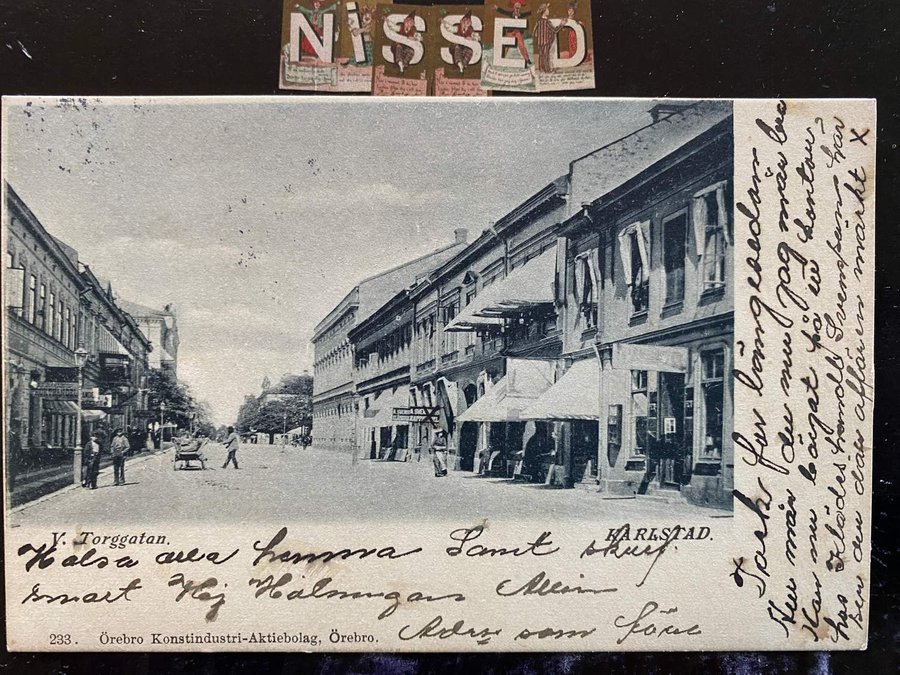 NiSSED
V. Torggatan.
KARLSTAD.
Hälsa alla hemma Samt skrif
snart Hej Hälsningar
Adrs som förr
233. Örebro Konstindustri-Aktiebolag, Örebro.
Tack för längesedan
Hur mår du nu jag mår bra
Kan nu börjat på in
hos Klädeshandl. Svensson har
den där affären märkt x